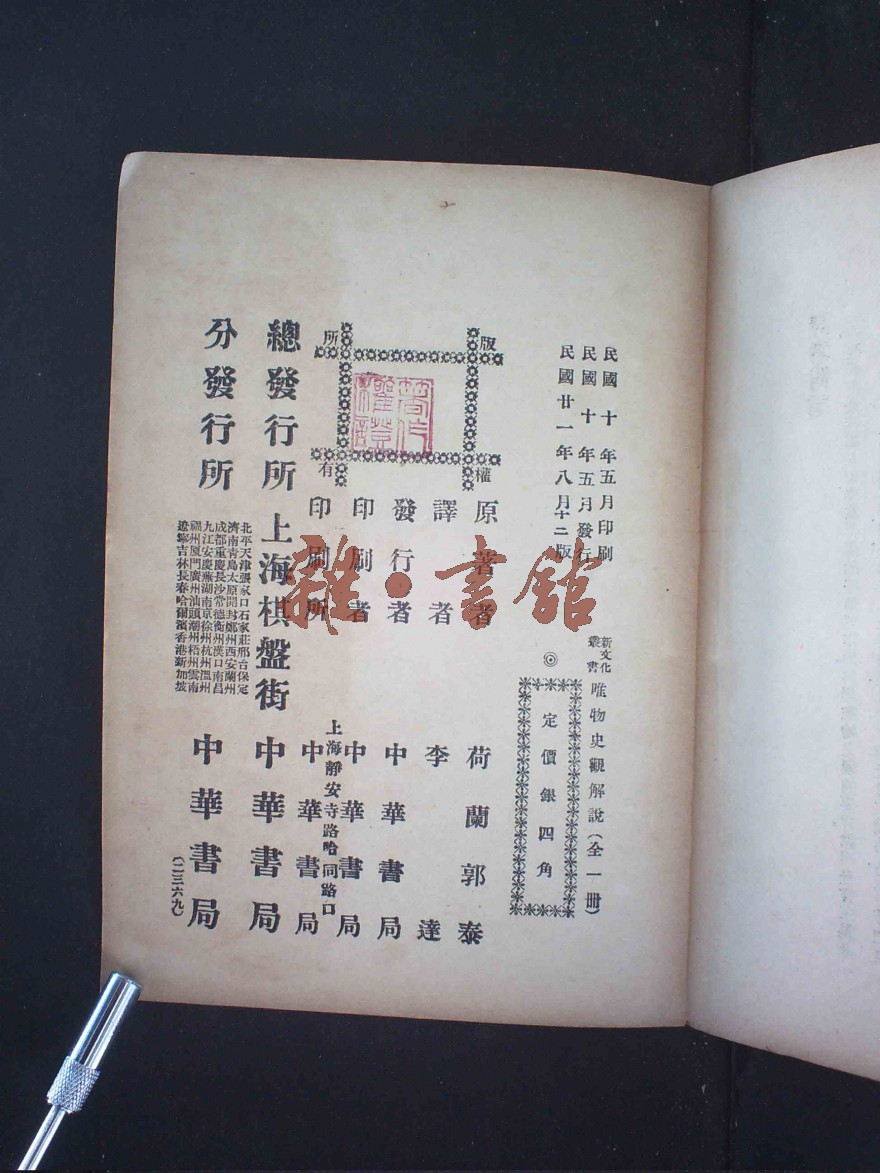 民國十年五月印刷
民國十年五月發行
民國廿一年八月十二版
新文化叢書 唯物史觀解說（全一冊）
◎
定價銀四角
版權所有
著作權證
原著者 荷蘭郭泰
譯者 李達
發行者 中華書局
印刷者 中華書局
上海靜安寺路哈同路口
印刷所 中華書局
總發行所 上海棋盤街 中華書局
分發行所
北平天津張家口石家莊邢台保定
濟南青島太原開封鄭州西安蘭州
成都重慶長沙常德衡州漢口南昌
九江安慶蕪湖南京徐州杭州溫州
福州厦門廣州汕頭潮州梧州雲南
遼寧吉林長春哈爾濱香港新加坡
中華書局
（二三六九）
雜·書館